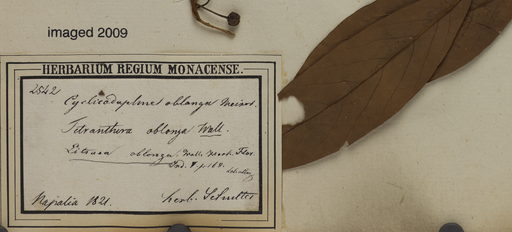 imaged 2009
HERBARIUM REGIUM MONACENSE.
2542
Cyclicodaphne oblonga
Tetranthera oblonga Wall.
Litsaea oblonga, Wall.
Ind. V. p. 168.
Napalia 1821. herb. Schultes